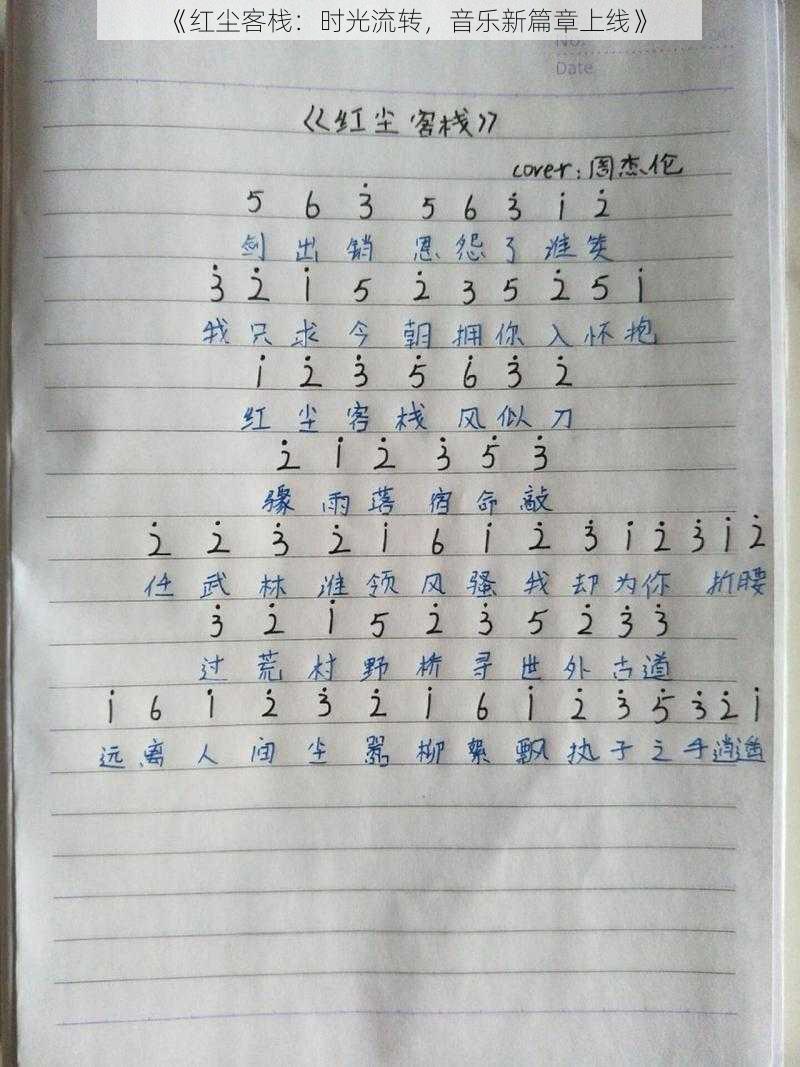 《红尘客栈：时光流转，音乐新篇章上线》
No.
Date
《红尘客栈》
cover：周杰伦
5 6 3̇ 5 6 3̇ 1̇ 2̇
剑出鞘恩怨了谁笑
3̇ 2̇ 1̇ 5 2̇ 3 5 2̇ 5 1̇
我只求今朝拥你入怀抱
1̇ 2̇ 3̇ 5̇ 6̇ 3̇ 2̇
红尘客栈风似刀
2̇ 1̇ 2̇ 3̇ 5̇ 3̇
骤雨落宿命敲
2̇ 2̇ 3̇ 2̇ 1̇ 6 1̇ 2̇ 3̇ 1̇ 2̇ 3̇ 1̇ 2̇
任武林谁领风骚我却为你 折腰
3̇ 2̇ 1̇ 5 2̇ 3̇ 5 2̇ 3̇ 3̇
过荒村野桥寻世外古道
1̇ 6 1̇ 2̇ 3̇ 2̇ 1̇ 6 1̇ 2̇ 3̇ 5̇ 3̇ 2̇ 1̇
远离人间尘嚣柳絮飘执子之手逍遥